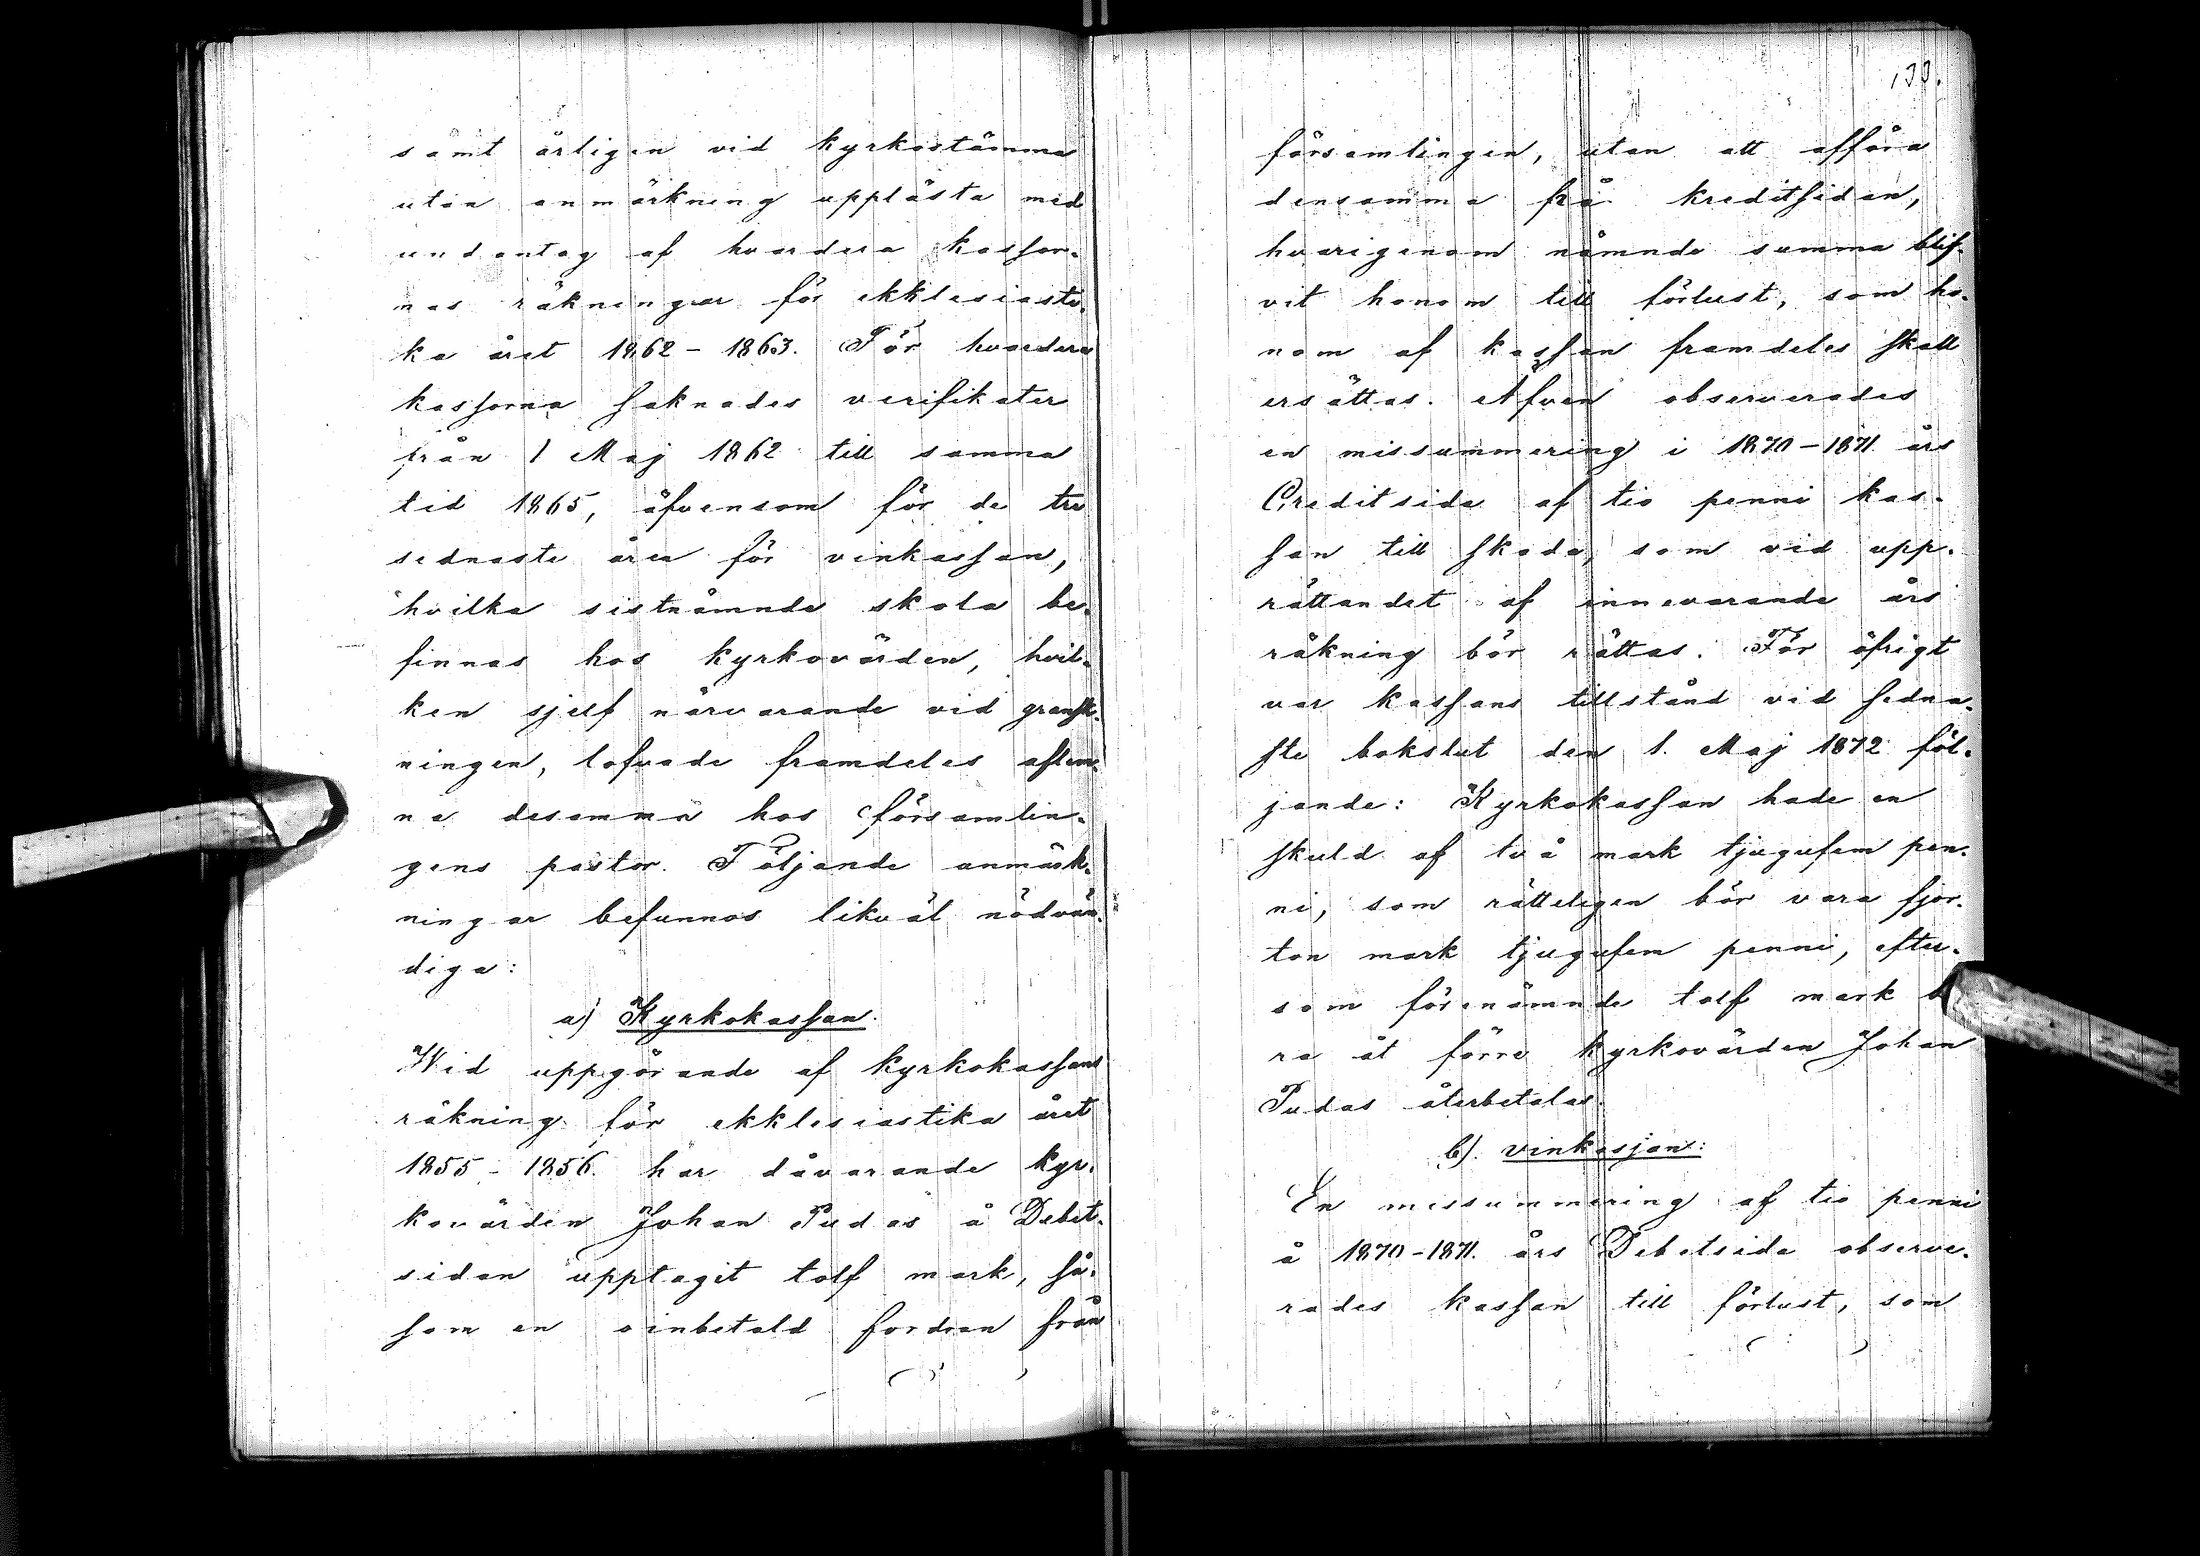 samt årligen vid kyrkostämma
utan anmärkning upplästa med
undantag af hvardera kassor-
nas räkningar för ekklesiasti-
ka året 1862 - 1863. För hvardera
kassorna saknades verifikater
från 1 Maj 1862 till samma
tid 1865, äfvensom för de tre
sednaste åren för vinkassan,
hvilka sistnämnde skola be-
finnas hos kyrkovärden, hvil-
ken sjelf närvarande vid gransk-
ningen, lofvade framdeles aflem-
na desamma hos församlin-
gens pastor. Följande anmärk-
ningar befunnos likväl nödvän-
diga:
a) Kyrkokassan.
Wid uppgörande af kyrkokassans
räkning för ekklesiastika året
1855 - 1856. har dåvarande kyr-
kovärden Johan Pudas å Debet-
sidan upptagit tolf mark, så-
som en oinbetald fordran från
133.
församlingen, utan att afföra
densamma frå kreditsidan,
hvarigenom nämnde summa blif-
vit honom till förlust, som ho-
nom af kassan framdeles skall
ersättas. Äfven observerades
en missummering i 1870 - 1871 års
Creditsida af tio penni kas-
san till skada, som vid upp-
rättandet af innevarande års
räkning bör rättas. För öfrigt
var kassans tillstånd vid sedna-
ste bokslut den 1. Maj 1872 föl-
jande: Kyrkokassan hade en
skuld af två mark tjugufem pen-
ni, som rätteligen bör vara fjor-
ton mark tjugufem penni, efter-
som förenämnde tolf mark
ra åt förre kyrkovärden Johan
Pudas återbetalas.
b). vinkassan:
En missummering af tio penni
å 1870 - 1871. års Debetsida observe-
rades kassan till förlust, som